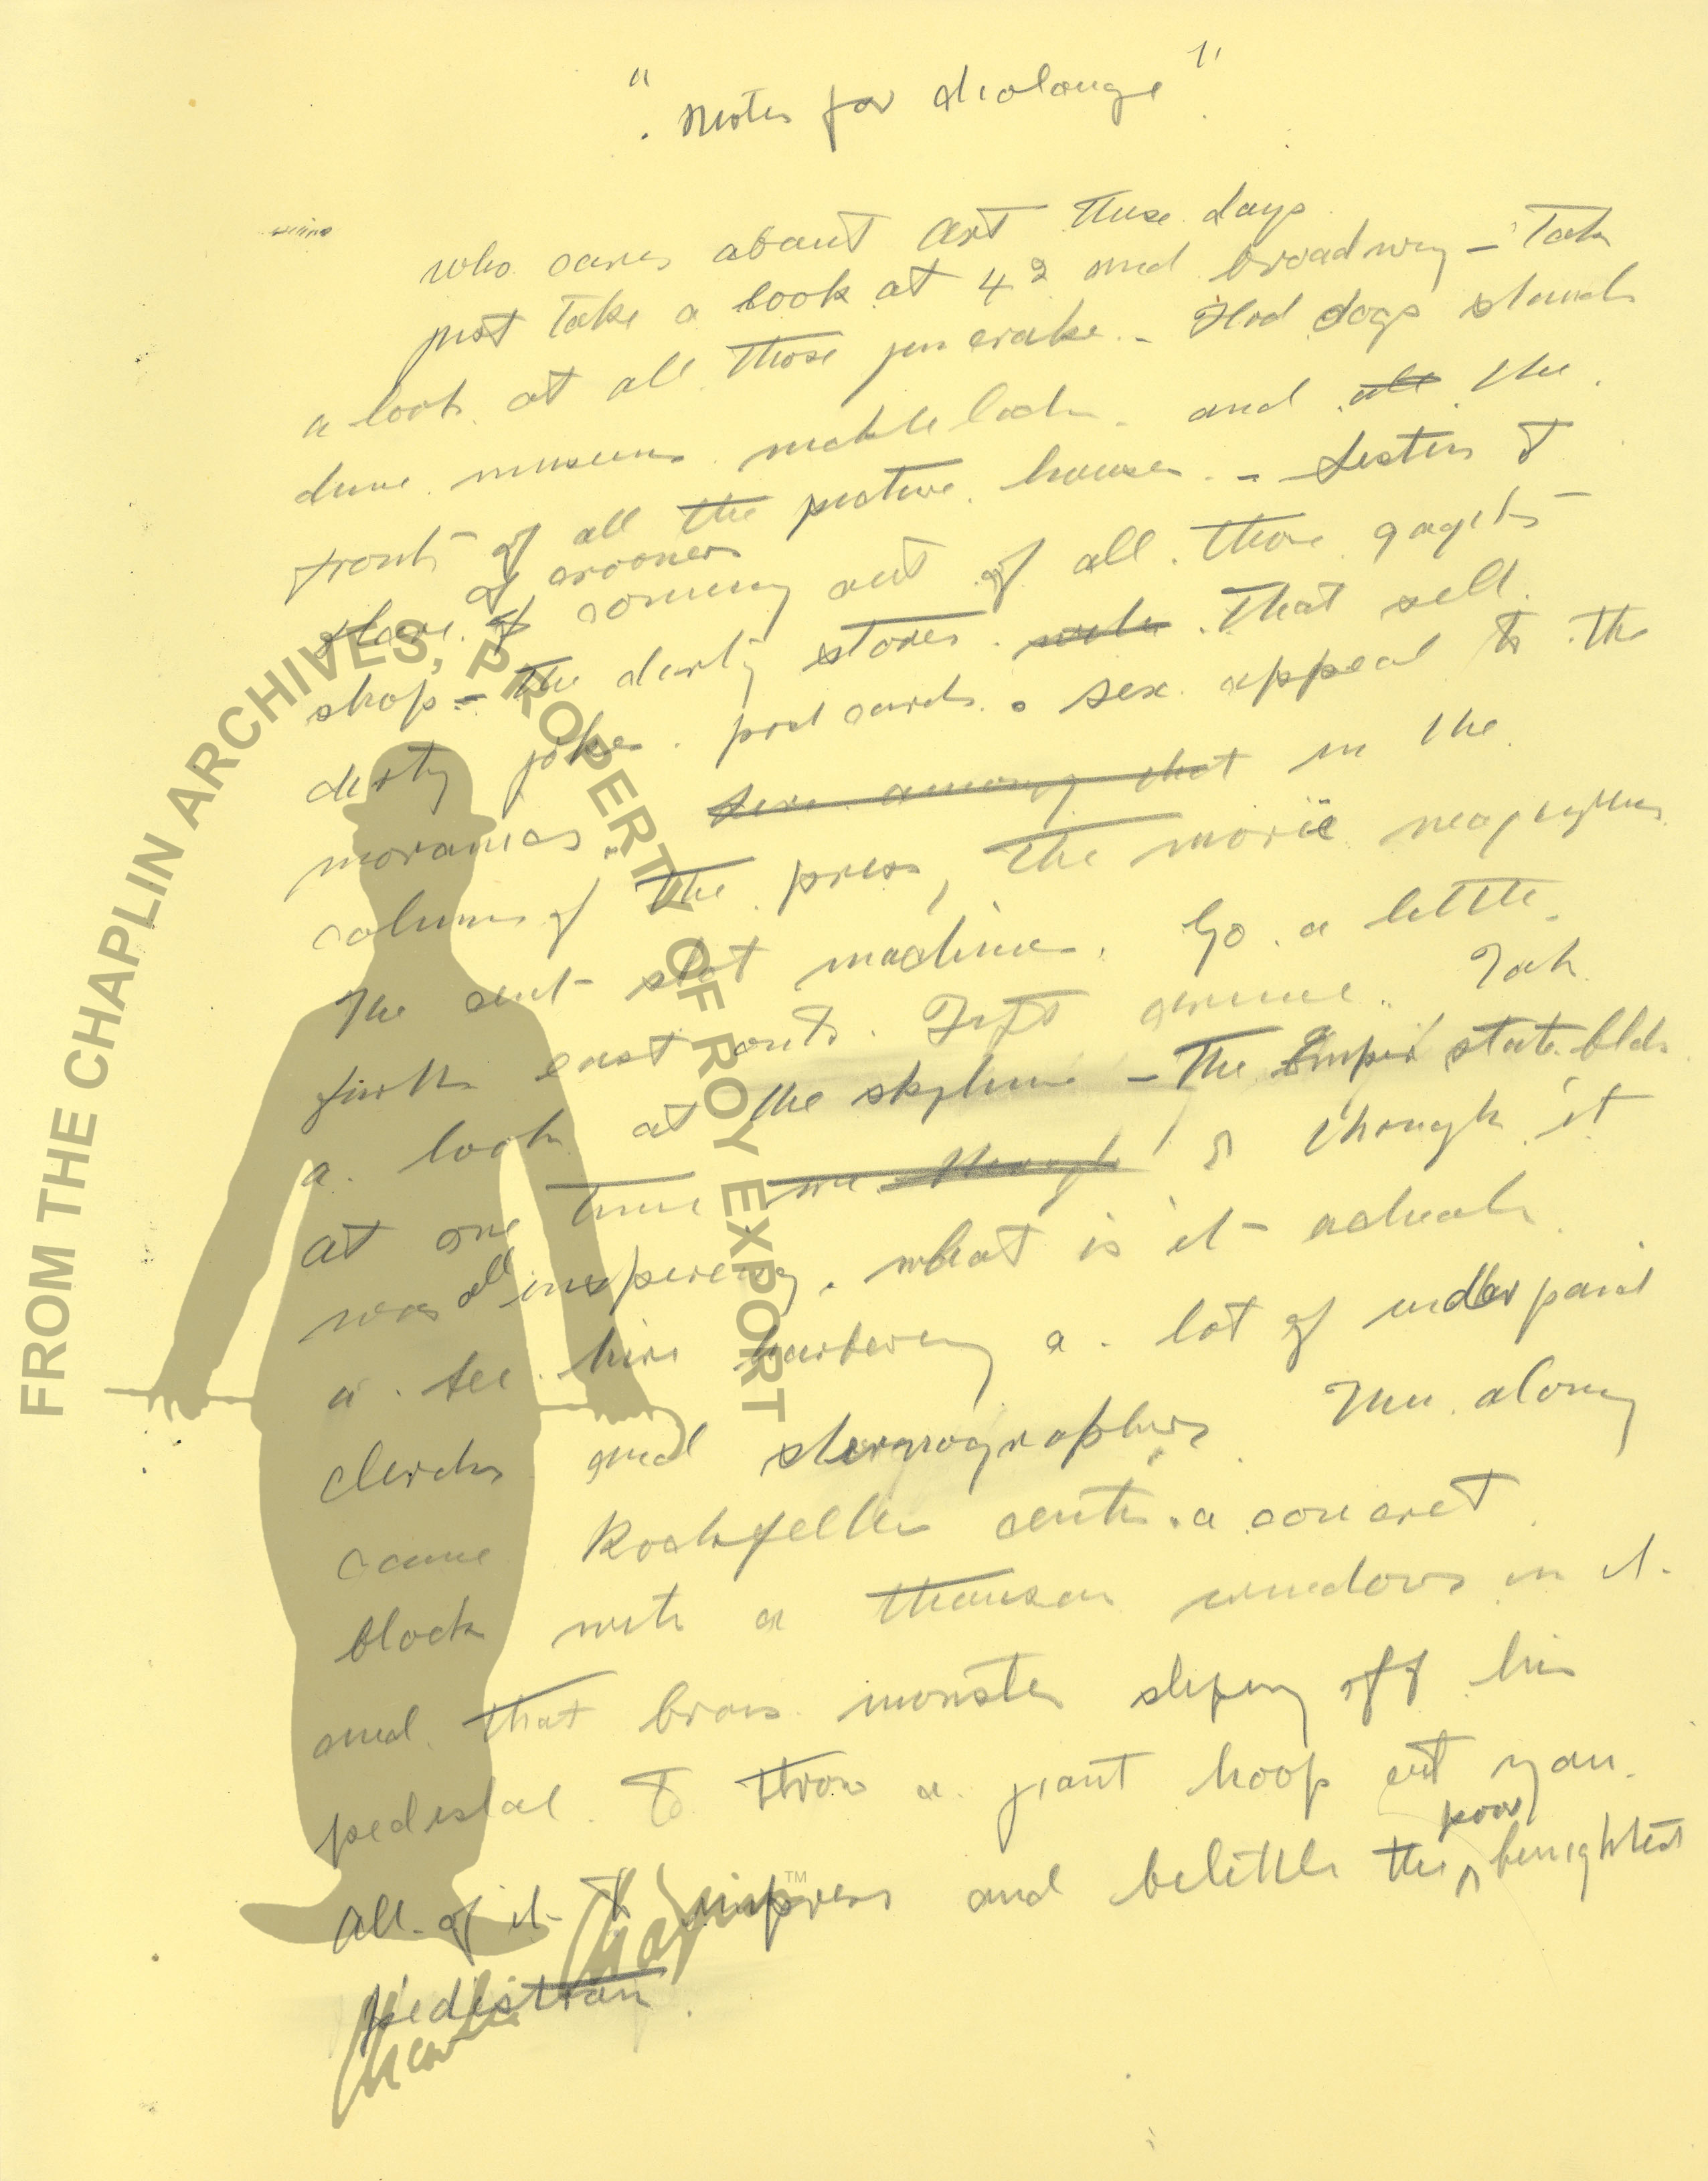 " Notes for dialouge "
who cares about art these days
just take a look at 42 and broadway – Take
a look at all those jim cracke – Hod dogs stands
dime museums and the
fronts of all the picture houses – Listen to
of crooners
coming out of all those gagets
shop – the dirty stores that sell
dirty jokes post cards. sex appeal to the
moranics. in the
columns of the press, the movie
the cent slot machines. Go a little
east onto Fift avenue. Take
a look at the skyline – The Empire state bldg
at one time I though it
was all inspiering, what is it actuale
a bee hive harboring a lot of under paid
clerks and stenographers Then along
came Rockfeller center. a concret
block with a thousan windows in it.
and that brass monster sliping off his
pedestal to throw a giant hoop at you.
poor
All of it to impress and belittle the benighted
pedistrian.
FROM THE CHAPLIN ARCHIVES, PROPERTY OF ROY EXPORT
TM
Charlie Chaplin